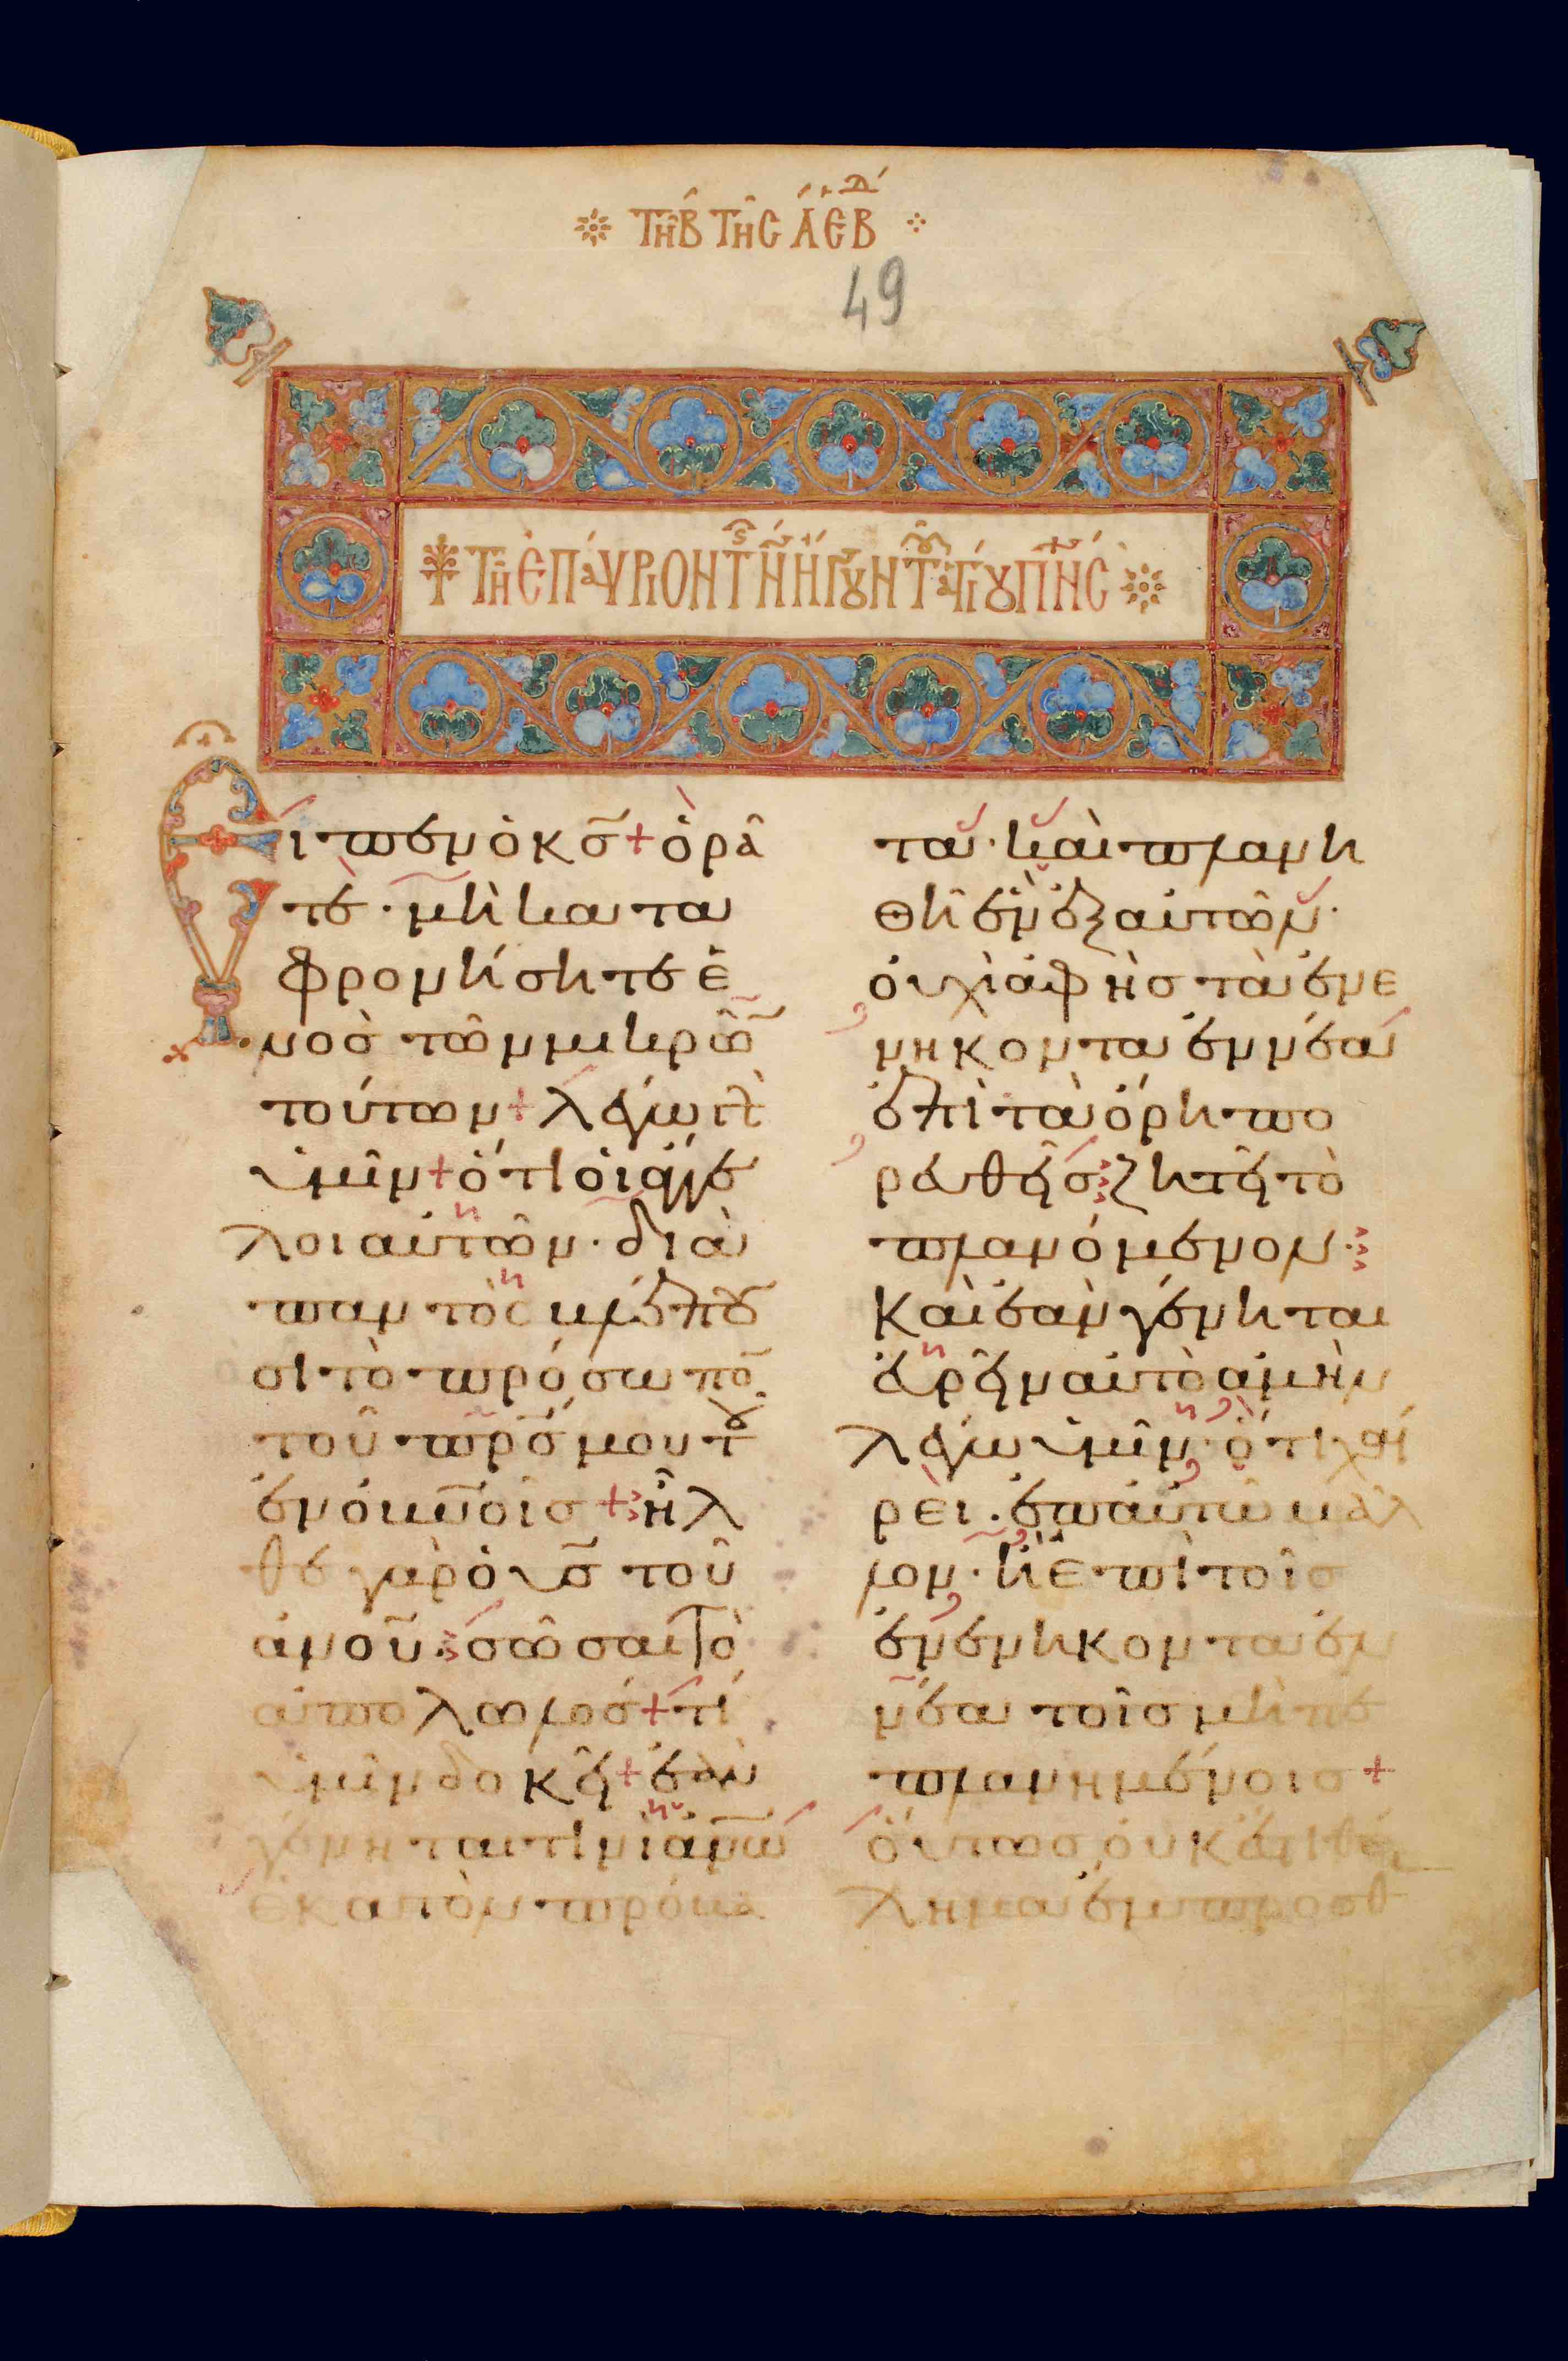 τῆ β τῆς ἀ ἑβδ
49
τῆ ἐπαύριον τῆς Ν ἤγουν τοῦ ἁγίου πνς
Εἶπεν ὁ κσ + ὁρᾶ
τε · μὴ κατα
φρονήσητε ἑ
νὸσ τῶν μικρῶ
τούτων + λέγω γὰρ
ὑμῖν + ὅτι οἱ ἄγγε
λοι αὐτῶν · διὰ
παντὸς βλέπου
σι τὸ πρόσωπο
τοῦ πρσ μου τοῦ
ἐν οὐνοῖσ + ἦλ
θε γὰρ ὁ υσ τοῦ
ἀνου σῶσαι τὸ
ἀπολωλόσ + τί
ὑμῖν δοκεῖ + ἐὰν
γένηταί τινι ἀνω
ἑκατὸν πρόβα
τα · καὶ πλανη
θῆ ἓν ἐξ αὐτῶν ·
οὐχὶ ἀφεὶσ τὰ ἐνε
νηκονταεννέα
ἐπὶ τὰ ὄρη πο
ρευθεὶσ ζητεῖ τὸ
πλανόμενον ·
Καὶ ἐὰν γένηται
εὑρεῖν αὐτὸ ἀμὴν
λέγω ὑμῖν · ὅτι χαί
ρει · ἐπ αὐτῶ μᾶλ
λον · ἢ ἐπὶ τοῖσ
ἐνενηκονταεν
νέα τοῖσ μὴ πε
πλανημένοισ +
Οὕτωσ οὐκ ἔστι θέ
λημα ἔμπροσθ